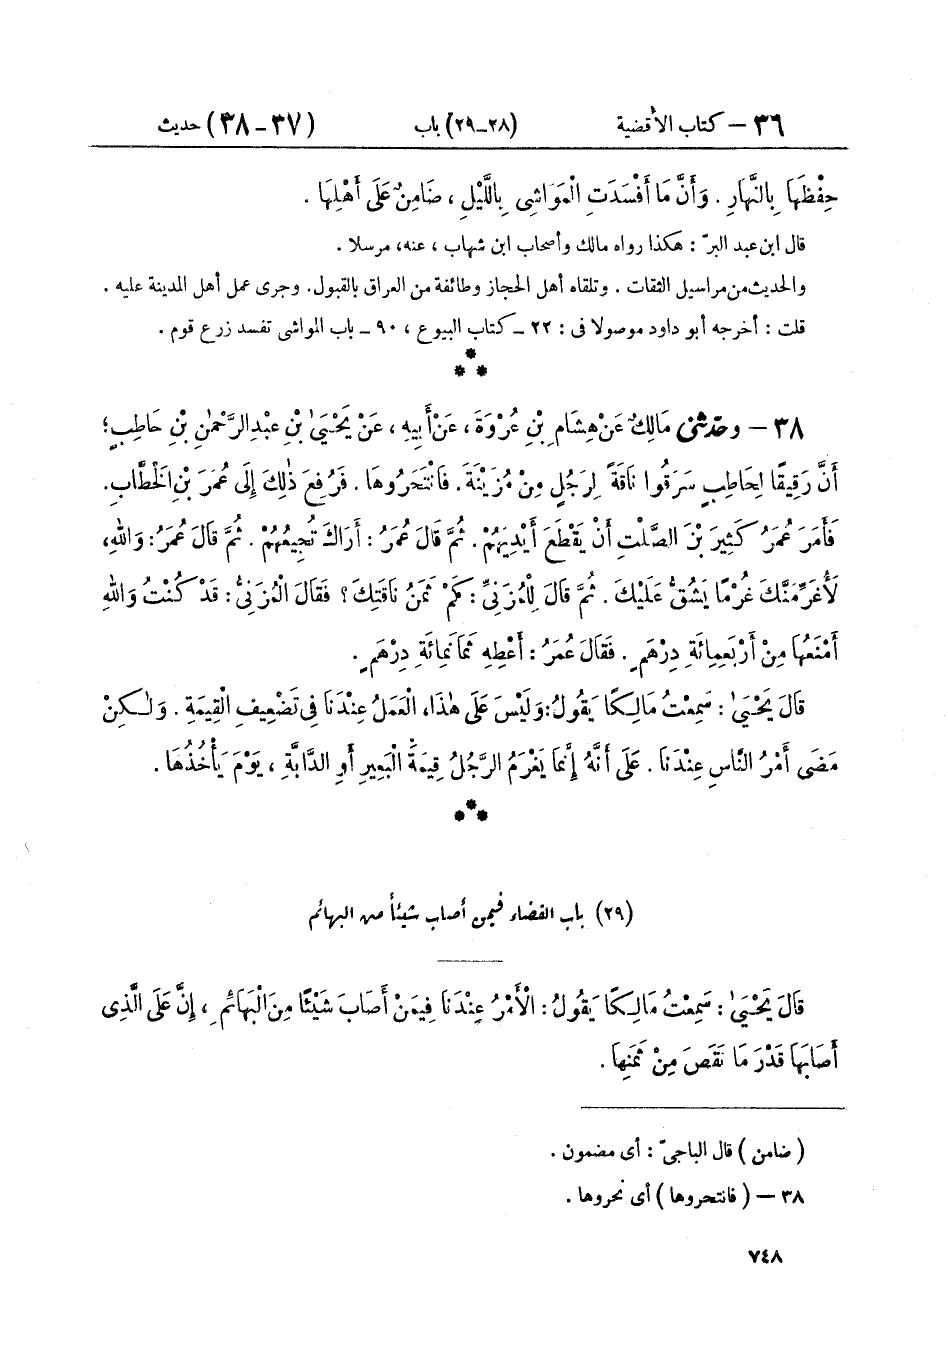 ٣٦ – كتاب الأقضية (٢٨-٢٩) باب (٣٧-٣٨) حديث
حِفْظَهَا بِالنَّهَارِ . وَأَنَّ مَا أَفْسَدَتِ الْمَوَاشِى بِاللَّيْلِ ، ضَامِنٌ عَلَى أَهْلِهَا .
قال ابن عبد البرّ : هكذا رواه مالك وأصحاب ابن شهاب ، عنه، مرسلا .
والحديث من مراسيل الثقات . وتلقاه أهل الحجاز وطائفة من العراق بالقبول. وجرى عمل أهل المدينة عليه .
قلت : أخرجه أبو داود موصولا فى : ٢٢ ـ كتاب البيوع ، ٩٠ ـ باب المواشى تفسد زرع قوم .
***
٣٨ – وحدّثنى مَالِكٌ عَنْ هِشَامِ بْنِ عُرْوَةَ ، عَنْ أَبِيهِ ، عَنْ يَحْيَىٰ بْنِ عبْدِ الرَّحْمٰنِ بْنِ حَاطِبٍ؛
أَنَّ رَقِيقًا لِحَاطِبٍ سَرَقُوا نَاقَةً لِرَجُلٍ مِنْ مُزَيْنَةَ . فَانْتَحَرُوهَا . فَرُفِعَ ذٰلِكَ إِلَى عُمَرَ بْنِ الْخَطَّابِ.
فَأَمَرَ عُمَرُ كَثِيرَ بْنَ الصَّلْتِ أَنْ يَقْطَعَ أَيْدِيَهُمْ . ثُمَّ قَالَ عُمَرُ : أَرَاكَ تُجِيعُهُمْ . ثُمَّ قَالَ عُمَرُ: وَاللهِ،
لَأُغَرِّمَنَّكَ غُرْمًا يَشُقُّ عَلَيْكَ . ثُمَّ قَالَ لِلْمُزَنِىِّ : كَمْ ثَمَنُ نَاقَتِكَ ؟ فَقَالَ الْمُزَنِىُّ : قَدْ كُنْتُ وَاللهِ
أَمْنَعُهَا مِنْ أَرْبَعِمِائَةِ دِرْهَمٍ . فَقَالَ عُمَرُ : أَعْطِهِ ثَمَانَمِائَةِ دِرْهَمٍ .
قَالَ يَحْيَىٰ : سَمِعْتُ مَالِكًا يَقُولُ: وَلَيْسَ عَلَى هٰذَا، الْعَمَلُ عِنْدَنَا فِى تَضْعِيفِ الْقِيمَةِ . وَلٰكِنْ
مَضَى أَمْرُ النَّاسِ عِنْدَنَا . عَلَى أَنَّهُ إِنَّمَا يَغْرَمُ الرَّجُلُ قِيمَةَ الْبَعِيرِ أَوِ الدَّابَّةِ ، يَوْمَ يَأْخُذُهَا .
***
(٢٩) باب القضاء فيمن أصاب شيئا من البهائم
قَالَ يَحْيَىٰ : سَمِعْتُ مَالِكًا يَقُولُ : الْأَمْرُ عِنْدَنَا فِيمَنْ أَصَابَ شَيْئًا مِنَ الْبَهَائِمِ ، إِنَّ عَلَى الَّذِى
أَصَابَهَا قَدْرَ مَا نَقَصَ مِنْ ثَمَنِهَا .
( ضامن ) قال الباجىّ : أى مضمون .
٣٨ – ( فانتحروها ) أى نحروها .
٧٤٨